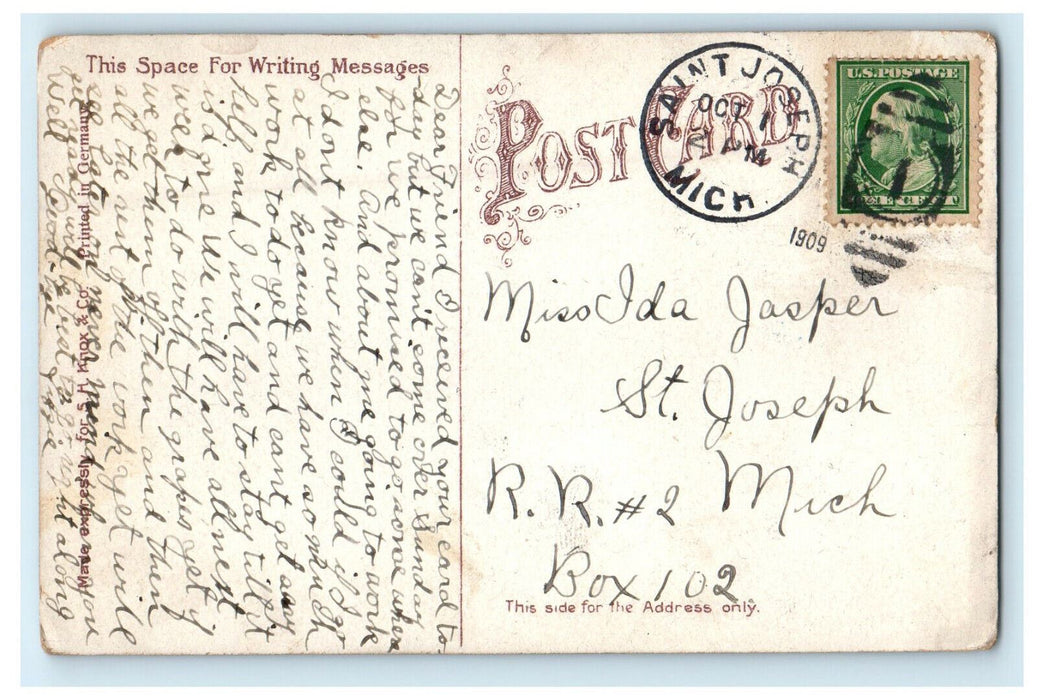 This Space For Writing Messages
Dear Friend I received your card to-
day but we can't some over Sunday
for we promised to go some where
else. And about me going to work
I dont know when I could if I go
at all because we have so much
work to do yet and cant get any
and I will have to stay till it
is We will have all next
week to do with the grapes yet if
we get them off then and then
all the rest of the work yet will
you
Well along
Made expressly for S. H. Knox & Co. Printed in Germany
POST CARD
SAINT JOSEPH
OCT 1
2 PM
MICH
1909
U.S. POSTAGE
Miss Ida Jasper
St. Joseph
R. R. #2 Mich
Box 102
This side for the Address only.